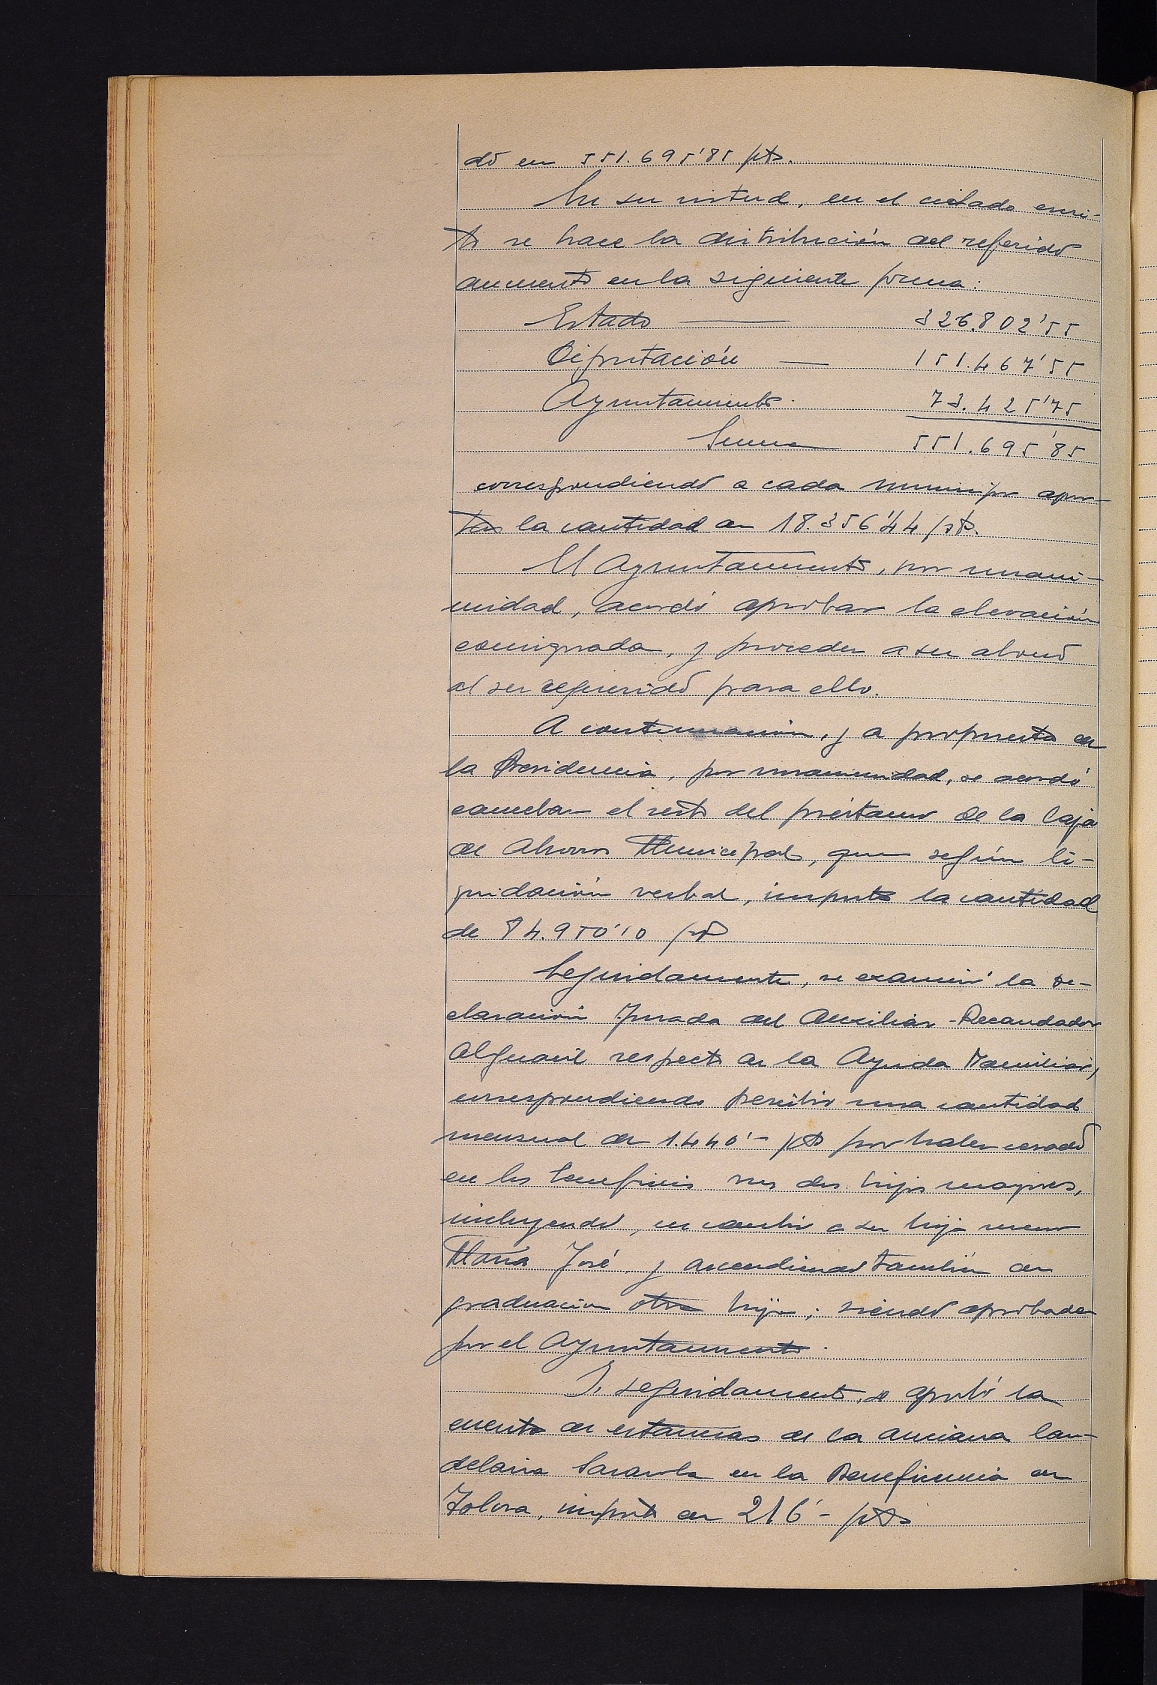 do en 551.695'85 pts.
En su virtud, en el citado escri-
to se hace la distribución del referido
aumento en la siguiente forma:
Estado — 326.802'55
Diputación — 151.467'55
Ayuntamiento. 73.425'75
Suma 551.695'85
correspondiendo a cada municipio apor-
tar la cantidad de 18.356'44 pts.
El Ayuntamiento, por unani-
midad, acordó aprobar la elevación
consignada, y proceder a su abono
al ser requerido para ello.
A continuación, y a propuesta de
la Presidencia, por unanimidad, se acordó
cancelar el resto del préstamo de la Caja
de Ahorros Municipal, que según li-
quidación verbal, importa la cantidad
de 84.950'10 pts
Seguidamente, se examinó la de-
claración Jurada del Auxiliar-Recaudador
Alguacil respecto de la Ayuda Familiar,
correspondiendo percibir una cantidad
mensual de 1.440'- pts por haber cesado
en los beneficios sus dos hijos mayores,
incluyendo, en cambio a su hija menor
María José, y ascendiendo también de
graduación otro hijo; siendo aprobada
por el Ayuntamiento.
Y, seguidamente, se aprobó la
cuenta de estancias de la anciana Can-
delaria Sarasola en la Beneficencia de
Tolosa, importe de 216'- pts